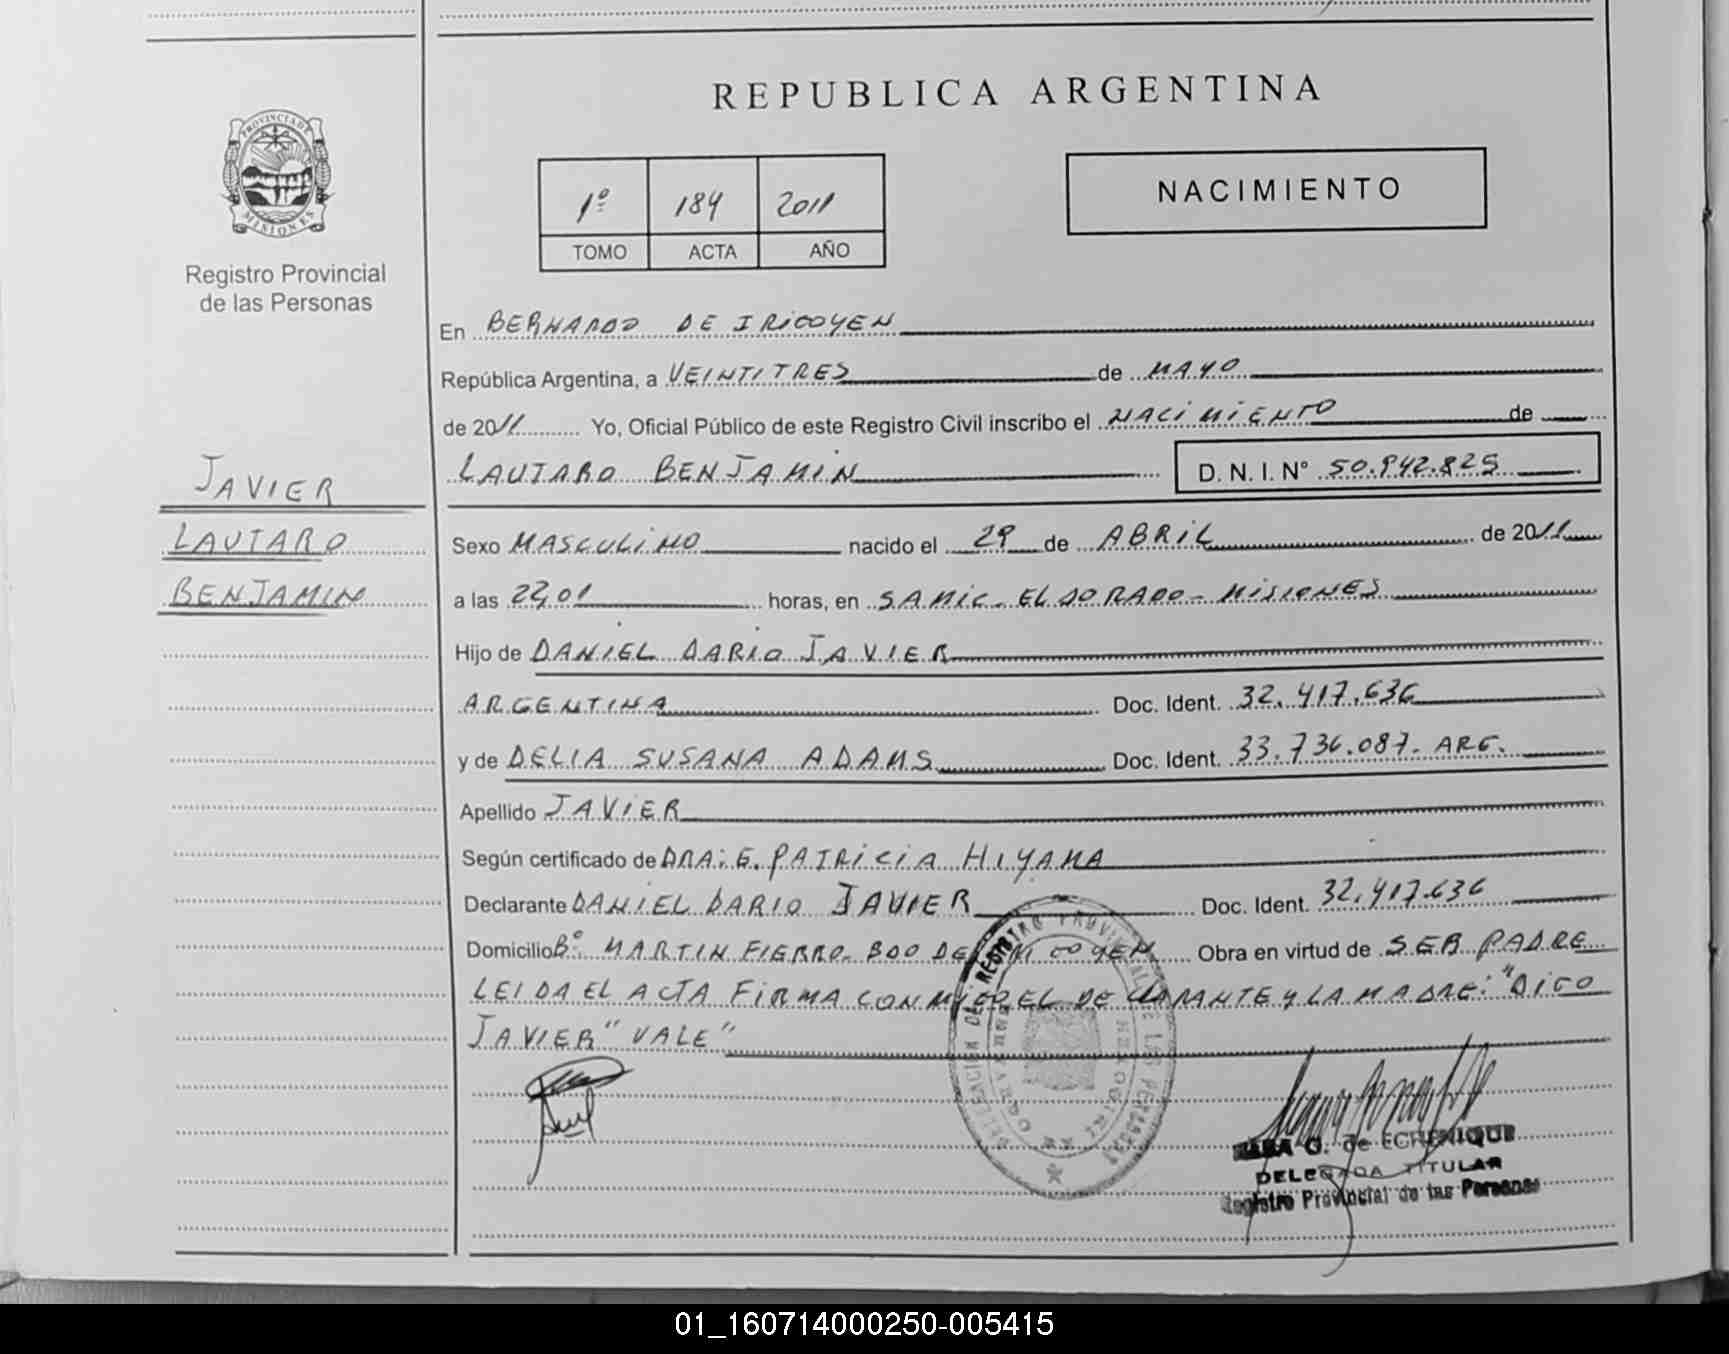 REPUBLICA ARGENTINA
PROVINCIA DE
MISIONES
Registro Provincial
de las Personas
1º 184 2011
TOMO ACTA AÑO
NACIMIENTO
En BERNARDO DE IRIGOYEN
República Argentina, a VEINTITRES de MAYO
de 2011 Yo, Oficial Público de este Registro Civil inscribo el NACIMIENTO de
JAVIER
LAUTARO
BENJAMIN
LAUTARO BENJAMIN D. N. I. N° 50.942.825
Sexo MASCULINO nacido el 29 de ABRIL de 2011
a las 22,01 horas, en SAMIC - ELDORADO - MISIONES
Hijo de DANIEL DARIO JAVIER
ARGENTINA Doc. Ident. 32.417.636
y de DELIA SUSANA ADAMS Doc. Ident. 33.736.087. ARG.
Apellido JAVIER
Según certificado de DRA: G. PATRICIA HIYAMA
Declarante DANIEL DARIO JAVIER Doc. Ident. 32.417.636
Domicilio Bº: MARTIN FIERRO - BDO DE IRIGOYEN Obra en virtud de SER PADRE
LEIDA EL ACTA FIRMA CONMIGO EL DECLARANTE Y LA MADRE: "DIGO
JAVIER" VALE"
DELEGACION DEL REGISTRO PROVINCIAL DE LAS PERSONAS
G. de ECHENIQUE
DELEGADA TITULAR
Registro Provincial de las Personas
01_160714000250-005415